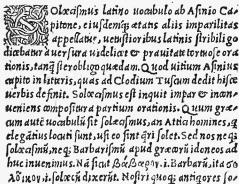 Solœcismus latino vocabulo ab Asinio Ca-
pitone, eiusdemq; ætatis aliis imparilitas
appellatur, vetustioribus latinis stribiligo
dicebatur a versura videlicet & prauitate tortuosæ or-
ationis, tanq̃ strobiligo quædam. Quod vitium Asinius
capito in literis, quas ad Clodium Tuscum dedit hisce
verbis definit. Solœcismus est inquit impar & incon-
ueniens compositura partium orationis. Quum græ-
cum autē vocabulū sit solœcismus, an Attici homines, q
elegātius locuti sunt, vsi eo sint q̃ri solet. Sed nos neq;
solœcismū, neq; Barbarismū apud græcorū idoneos ad
huc inuenimus. Nā sicut βάρβαρον. i. Barbarū, ita σό
. i. solœcū dixerūt. Nostri quoq; antiquores so